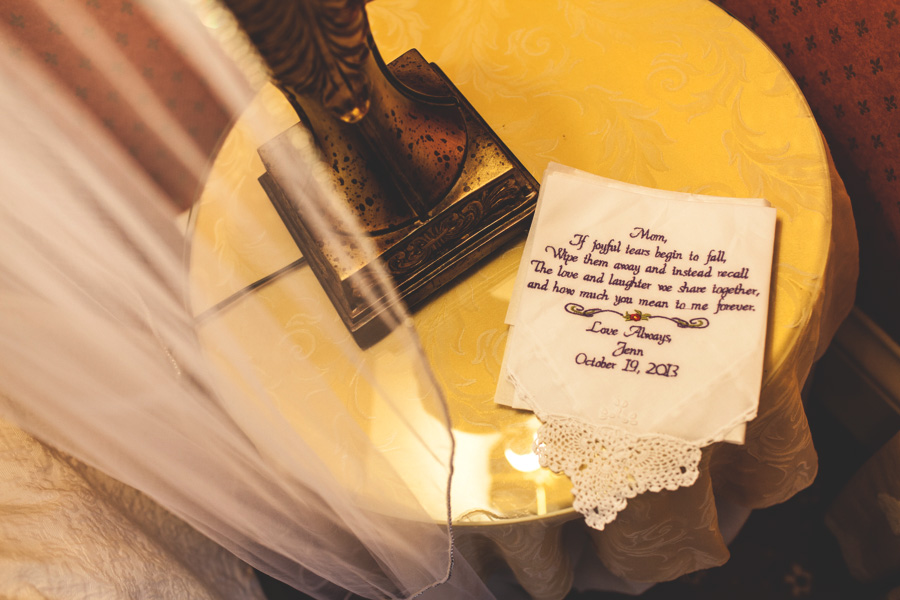 Mom,
If joyful tears begin to fall,
Wipe them away and instead recall
The love and laughter we share together,
and how much you mean to me forever.
Love Always
Jenn
October 19, 2013